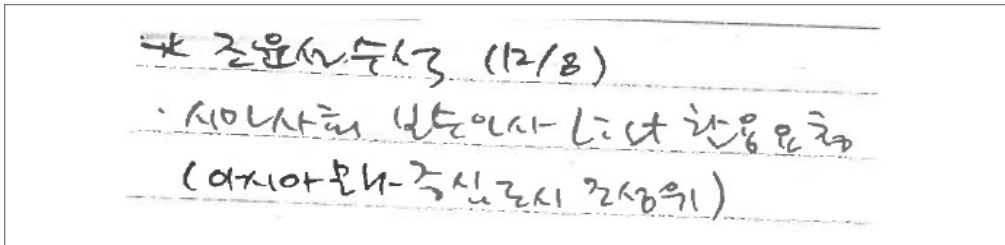 * 조윤선 수석 (12/8)
· 시민사회 보수인사 적극 활용 요청
(아시아문화중심도시 조성위)